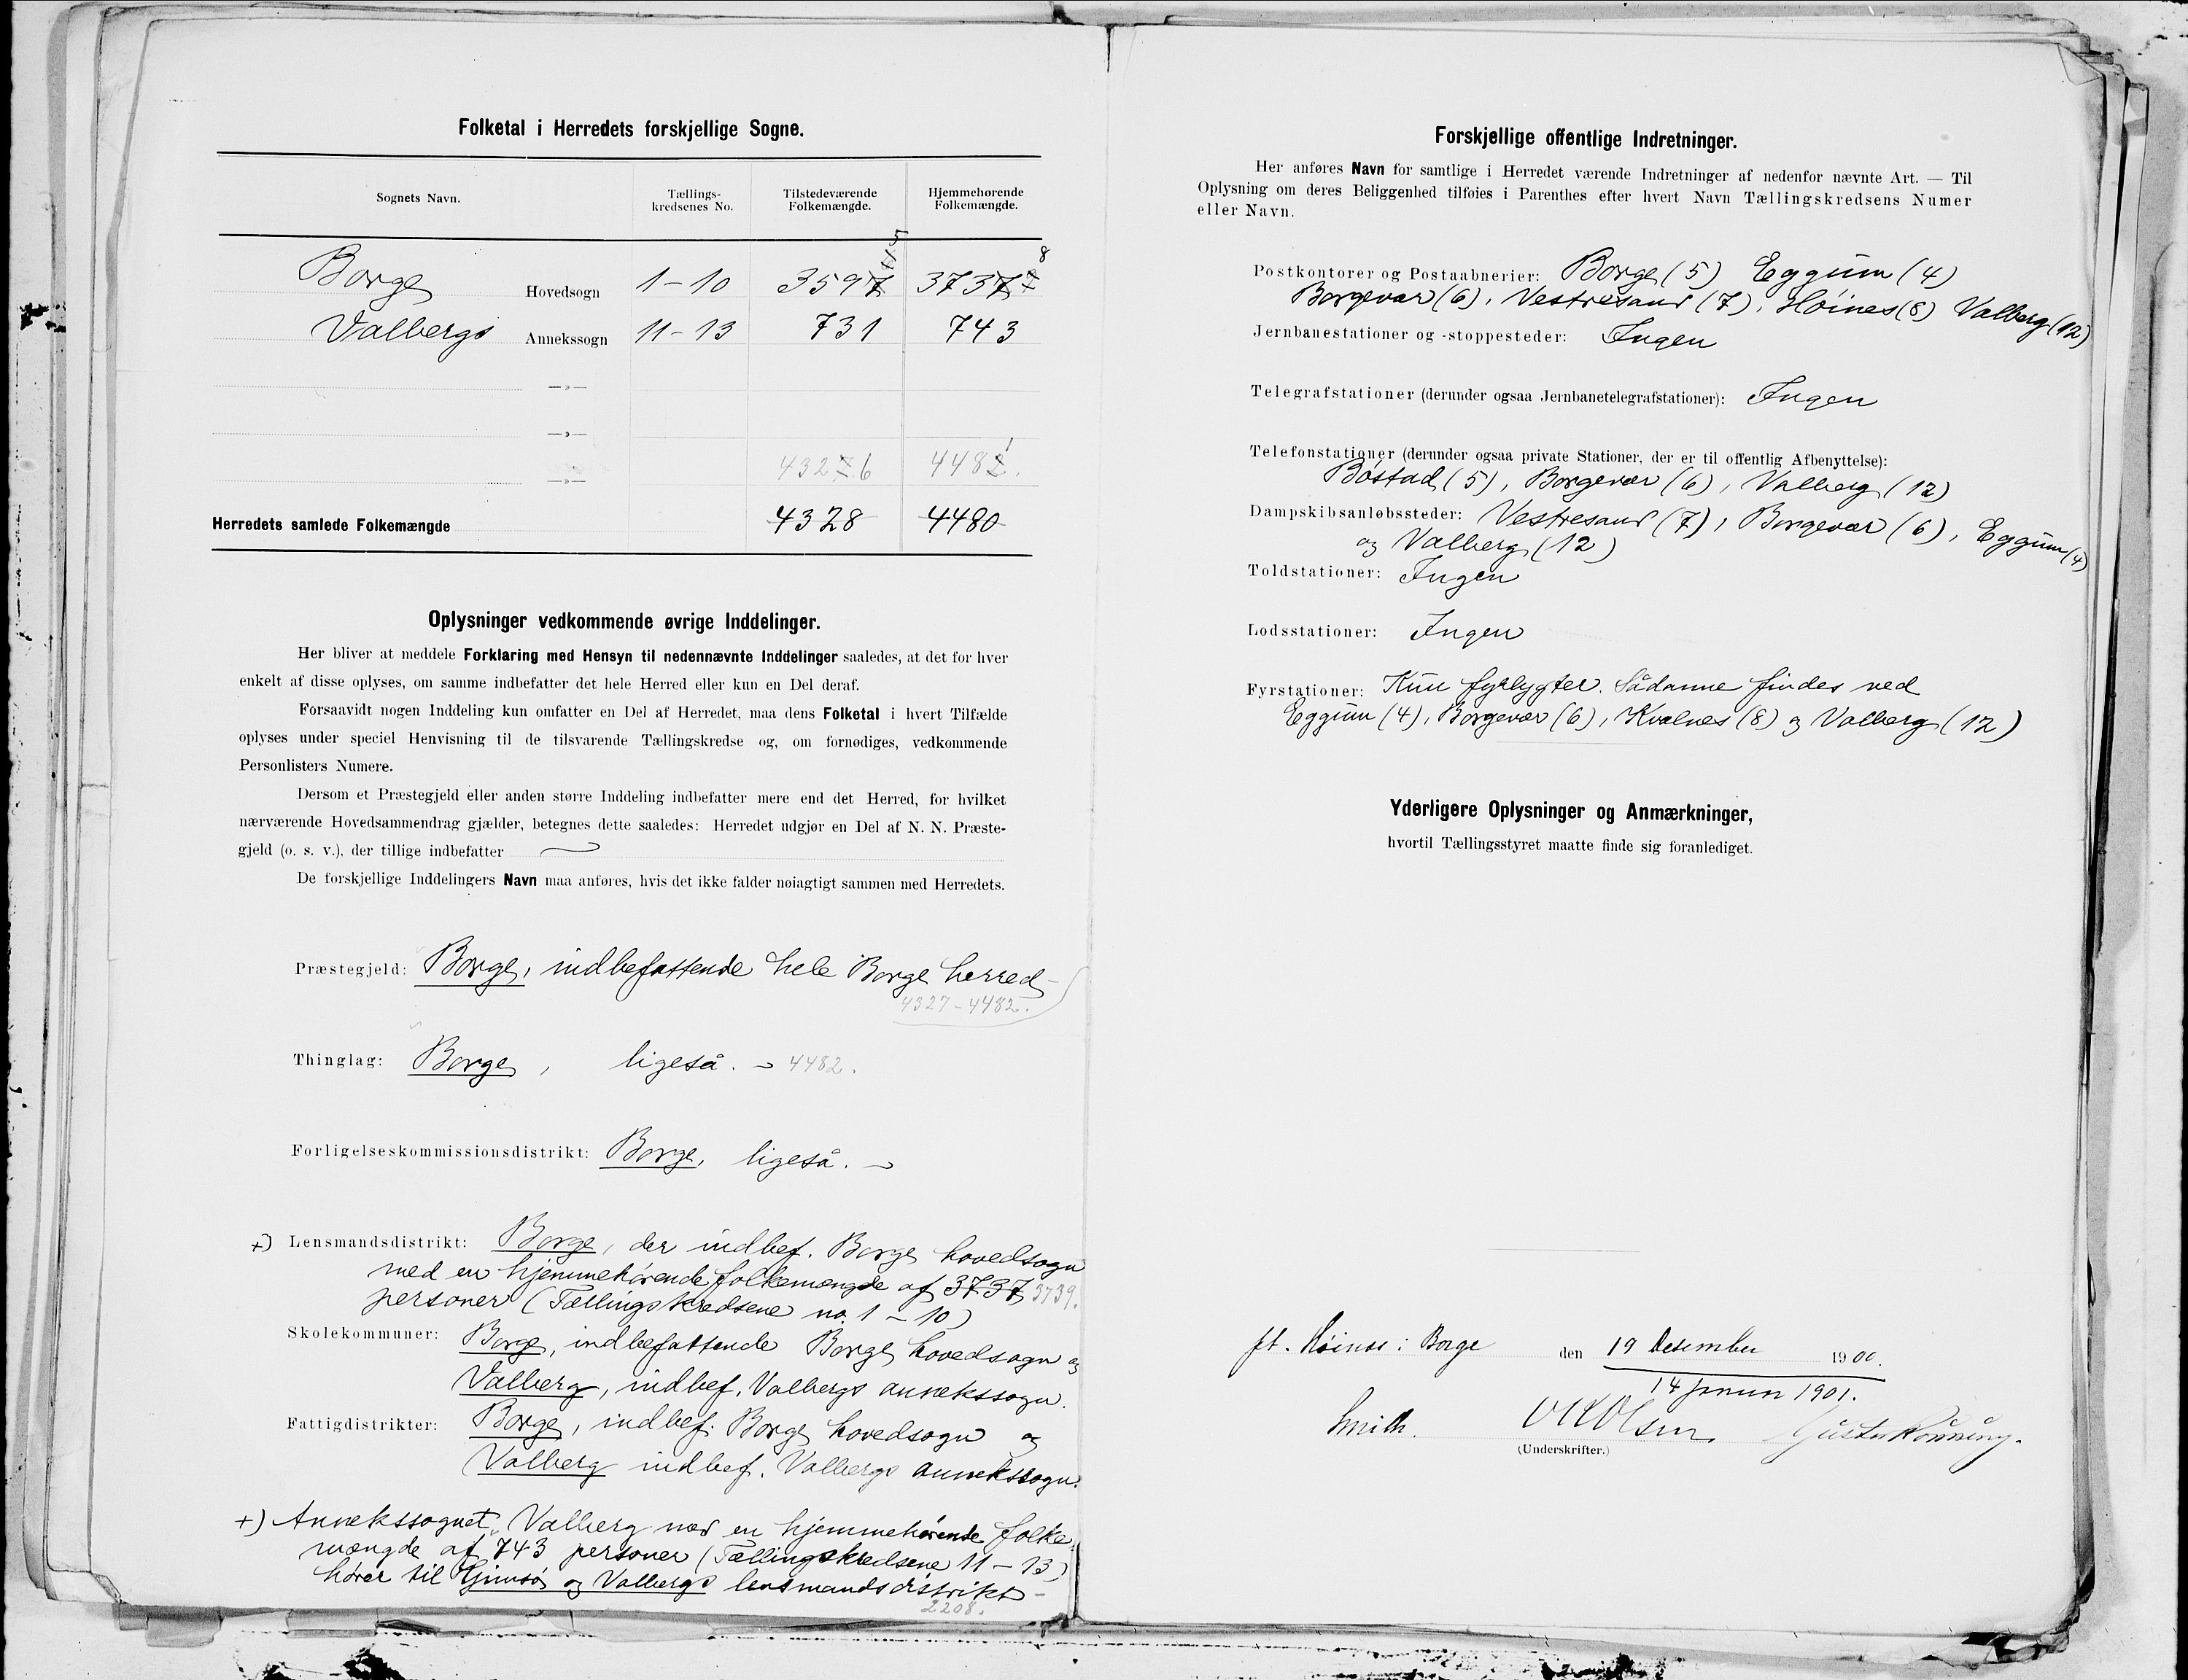 Folketal i Herredets forskjellige Sogne.
Sognets Navn.
Tællings-
kredsenes No.
Tilstedeværende
Folkemængde.
Hjemmehørende
Folkemængde.
Borge Hovedsogn 1-10 3597 5 3737 8
Valbergs Annekssogn 11-13 731 743
—»—
—»—
—»— 4327 6 4482 1
Herredets samlede Folkemængde 4328 4480
Oplysninger vedkommende øvrige Inddelinger.
Her bliver at meddele Forklaring med Hensyn til nedennævnte Inddelinger saaledes, at det for hver
enkelt af disse oplyses, om samme indbefatter det hele Herred eller kun en Del deraf.
Forsaavidt nogen Inddeling kun omfatter en Del af Herredet, maa dens Folketal i hvert Tilfælde
oplyses under speciel Henvisning til de tilsvarende Tællingskredse og, om fornødiges, vedkommende
Personlisters Numere.
Dersom et Præstegjeld eller anden større Inddeling indbefatter mere end det Herred, for hvilket
nærværende Hovedsammendrag gjælder, betegnes dette saaledes: Herredet udgjør en Del af N. N. Præste-
gjeld (o. s. v.), der tillige indbefatter
De forskjellige Inddelingers Navn maa anføres, hvis det ikke falder nøiagtigt sammen med Herredets.
Præstegjeld: Borge, indbefattende hele Borge herred-
4327-4482.
Thinglag: Borge, ligeså. - 4482.
Forligelseskommissionsdistrikt: Borge, ligeså. -
+) Lensmandsdistrikt: Borge, der indbef. Borge hovedsogn
med en hjemmehørende folkemængde af 3737 3739.
personer (Tællingskredsene no. 1-10)
Skolekommuner: Borge, indbefattende Borge hovedsogn og
Valberg, indbef. Valbergs annekssogn.
Fattigdistrikter: Borge, indbef. Borge hovedsogn og
Valberg indbef. Valbergs annekssogn.
+) Annekssognet Valberg med en hjemmehørende folke-
mængde af 743 personer (Tællingskredsene 11-13)
hører til Gimsø og Valbergs lensmandsdistrikt-
2208.
Forskjellige offentlige Indretninger.
Her anføres Navn for samtlige i Herredet værende Indretninger af nedenfor nævnte Art. — Til
Oplysning om deres Beliggenhed tilføies i Parenthes efter hvert Navn Tællingskredsens Numer
eller Navn.
Postkontorer og Postaabnerier: Borge (5) Eggum (4)
Borgevær (6), Vestresand (7), Høines (8) Valberg (12)
Jernbanestationer og -stoppesteder: Ingen
Telegrafstationer (derunder ogsaa Jernbanetelegrafstationer): Ingen
Telefonstationer (derunder ogsaa private Stationer, der er til offentlig Afbenyttelse):
Bøstad (5), Borgevær (6), Valberg (12)
Dampskibsanløbssteder: Vestresand (7), Borgevær (6), Eggum (4)
og Valberg (12)
Toldstationer: Ingen
Lodsstationer: Ingen
Fyrstationer: Kun fyrlygter. Sådanne findes ved
Eggum (4), Borgevær (6), Kvalnes (8) og Valberg (12)
Yderligere Oplysninger og Anmærkninger,
hvortil Tællingsstyret maatte finde sig foranlediget.
pt. Høines i Borge den 19 Desember 1900.
14 januar 1901.
Smith. Olsen Gustav Rønning.
(Underskrifter.)